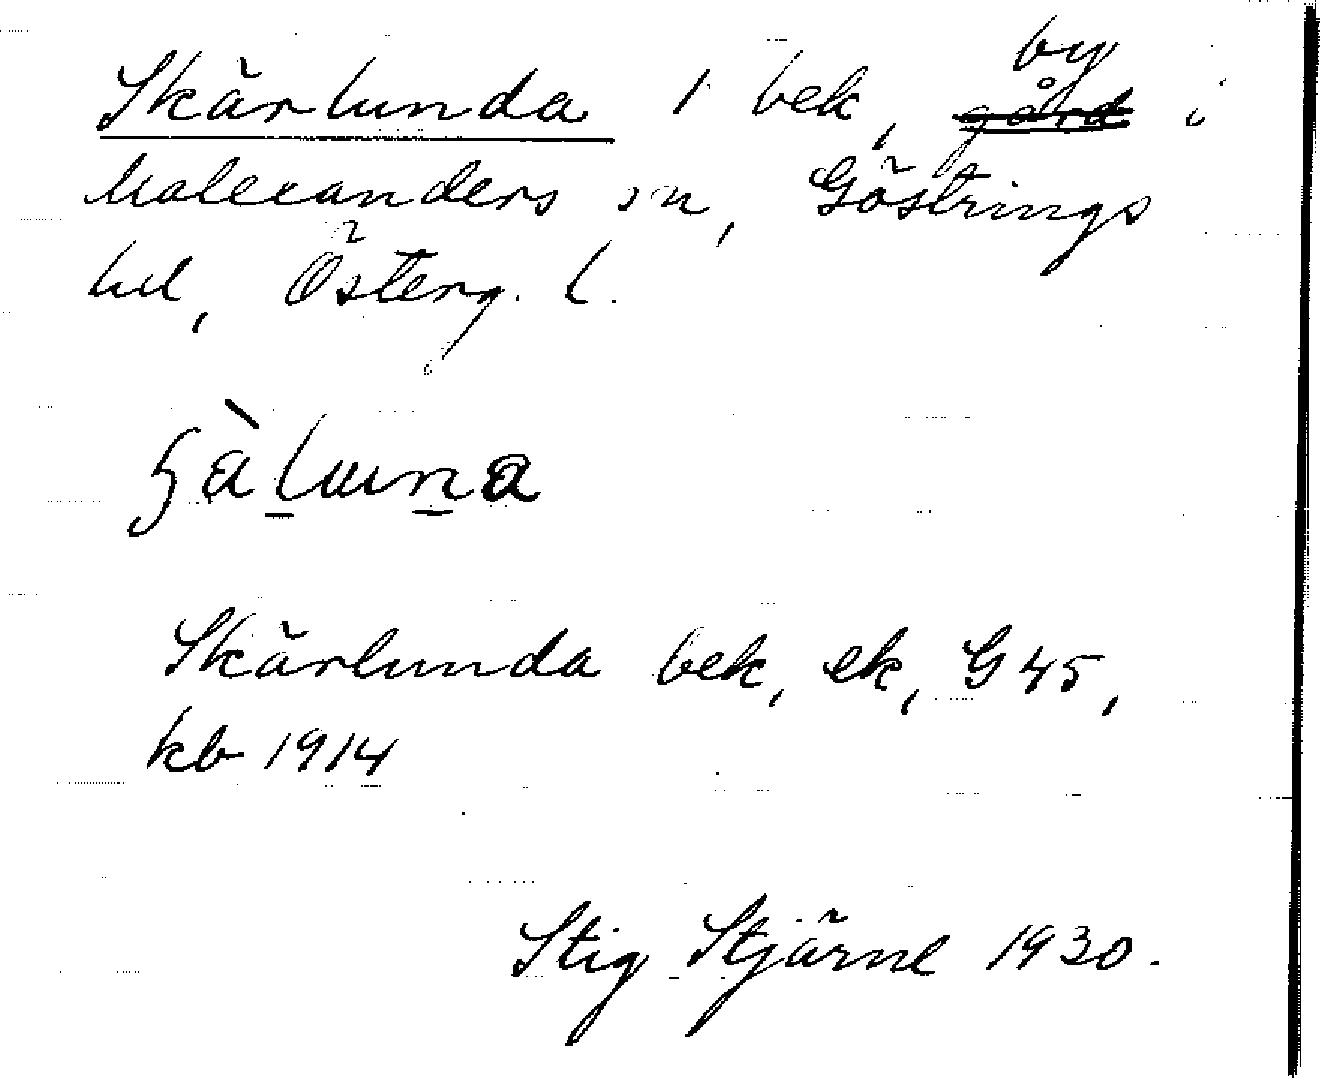 Skärlunda 1 bek, by gård i
Malexanders sn, Göstrings
hd, Österg. l.
Skärlunda bek, ek, G45,
kb 1914
Stig Stjärne 1930.